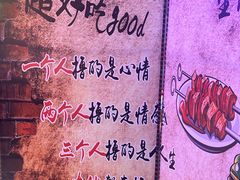 超好吃good
一个人撸的是心情
两个人撸的是情感
三个人撸的是人生